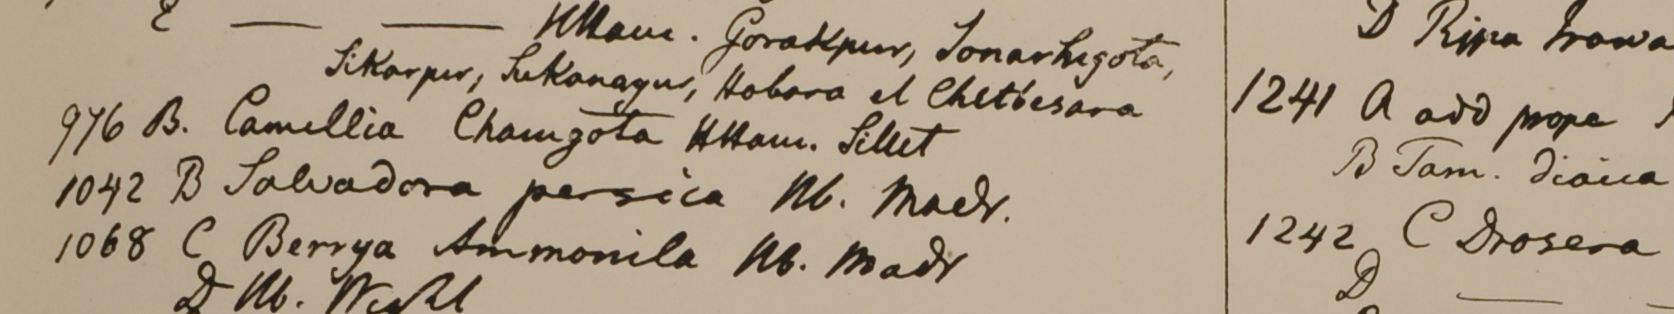 E — — HHam. Gorakpur, Sonarhigota,
Sikarpur, Sukanagur, Hobara et Chetbesara
976 B. Camellia Chamgota HHam. Sillet
1042 B Salvadora persica Hb. Madr.
1068 C Berrya Ammonila Hb. Madr
D Hb. Wight
D Ripa Irawa
1241 A add prope
B Tam. dioica
1242 C Drosera
D —